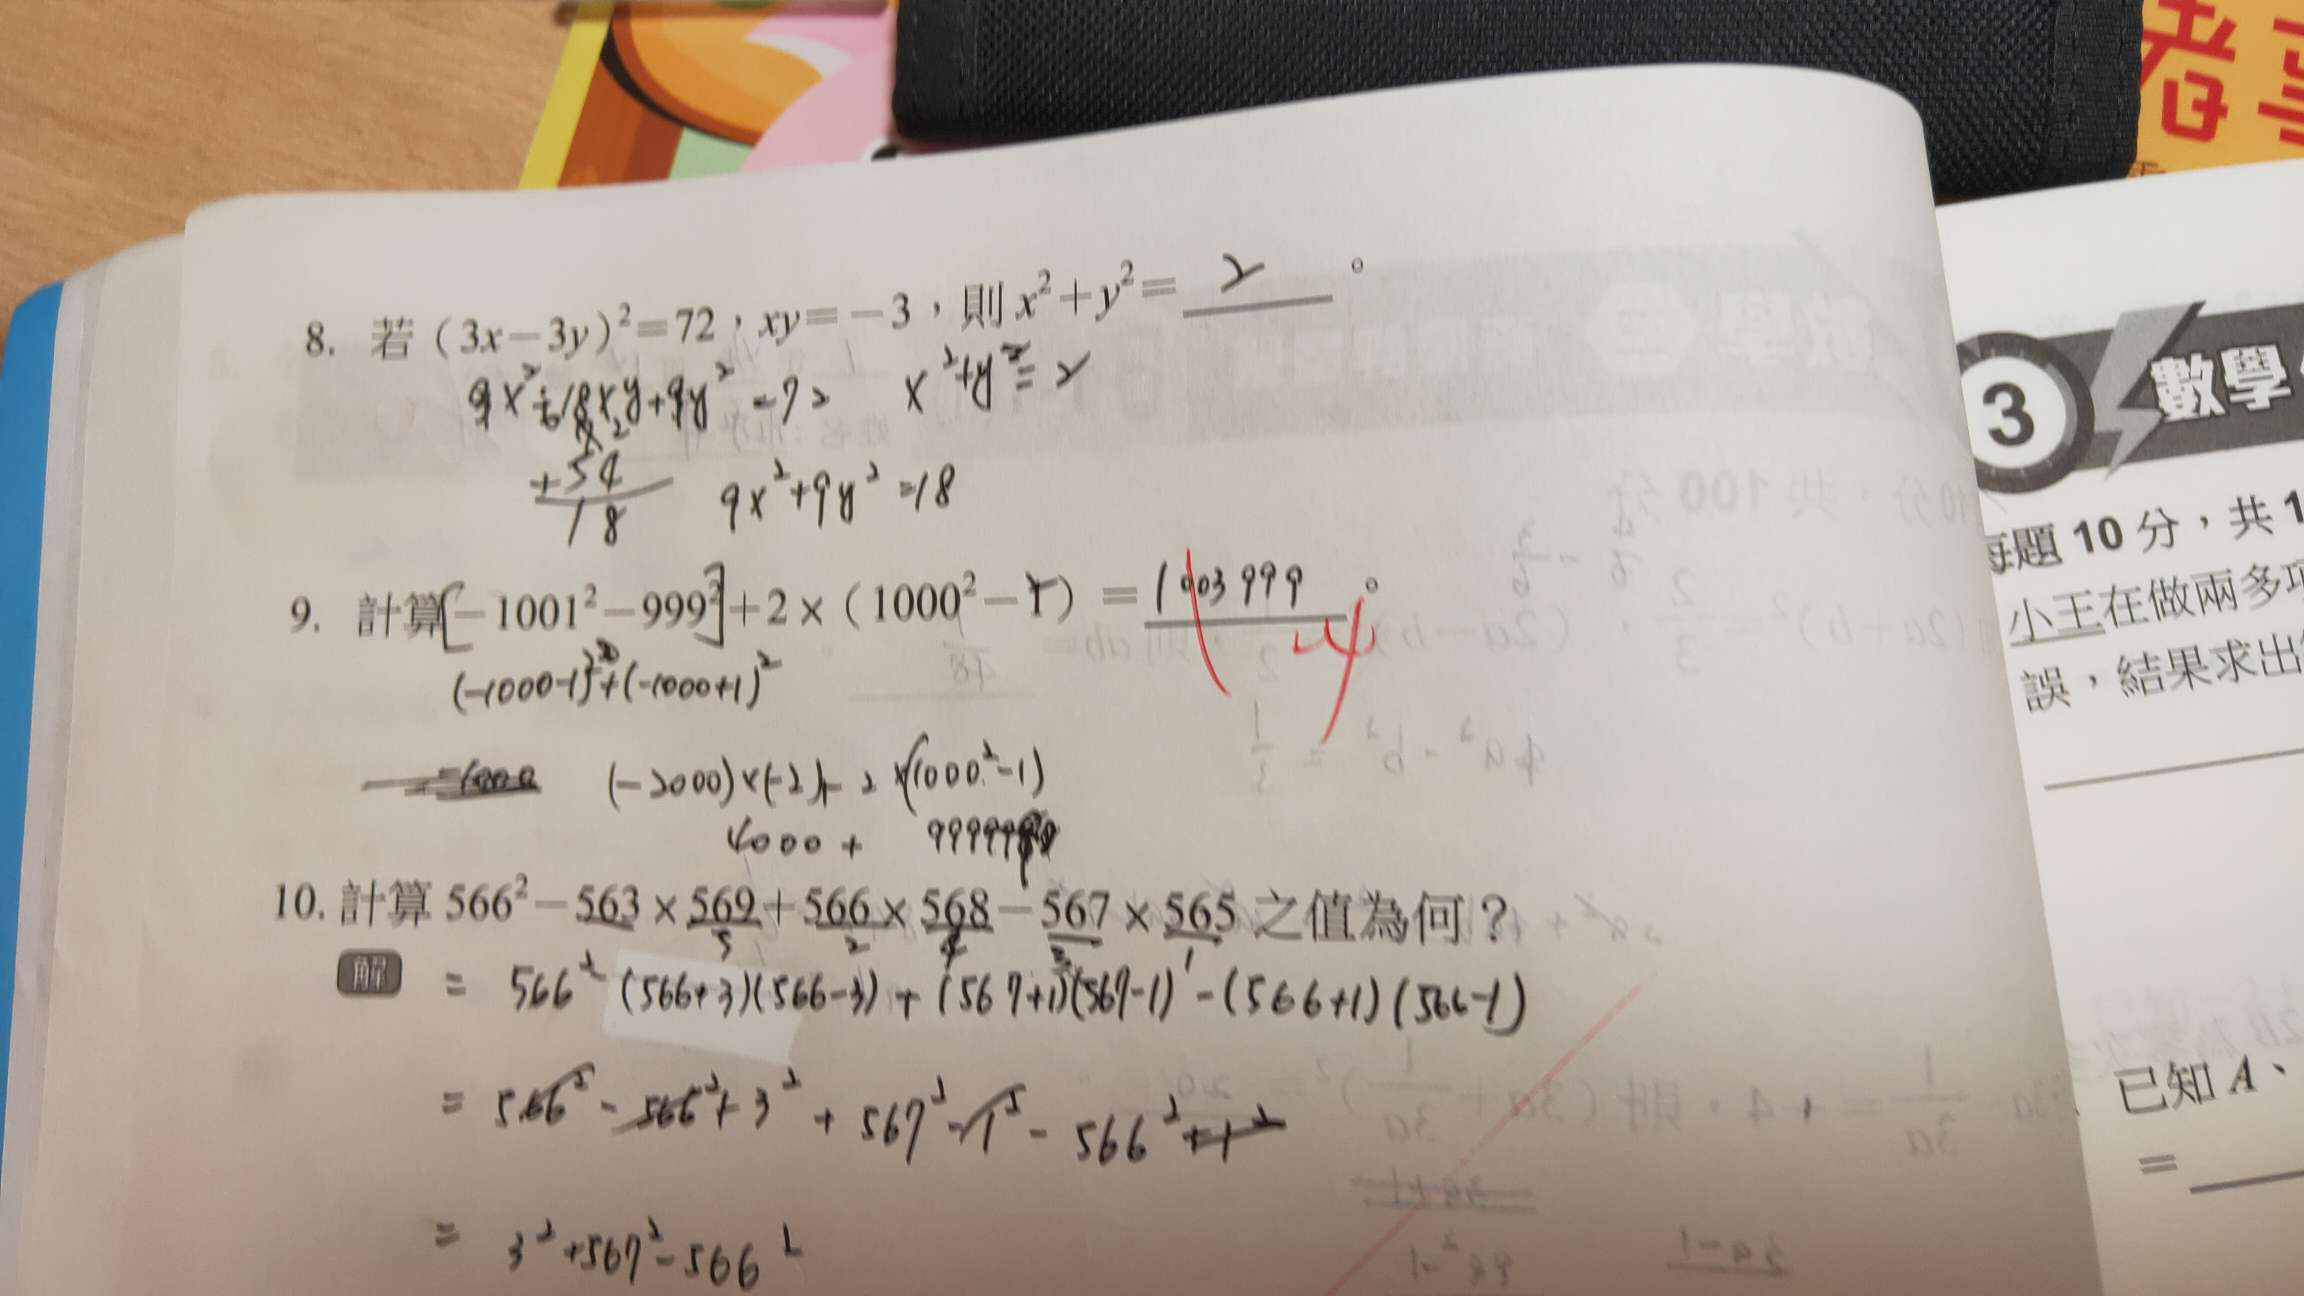 考
8. 若(3x－3y)²＝72，xy＝－3，則x²＋y²＝ 2 。
9x²+18xy+9y²=72 x²+y²=2
+54
18
9x²+9y²=18
9. 計算[－1001²－999²]＋2×(1000²－1)＝ 1003999 。
-4
(-1000-1)²+(-1000+1)²
(-2000)×(-2)+2×(1000²-1)
4000+
10. 計算 566²－563×569＋566×568－567×565 之值為何？
解 = 566²(566+3)(566-3)+(567+1)(567-1)-(566+1)(566-1)
= 566²-566²+3²+567²-1²-566²+1²
= 3²+567²-566²
3 數學
每題 10 分，共 1
小王在做兩多項
誤，結果求出
已知 A、
＝